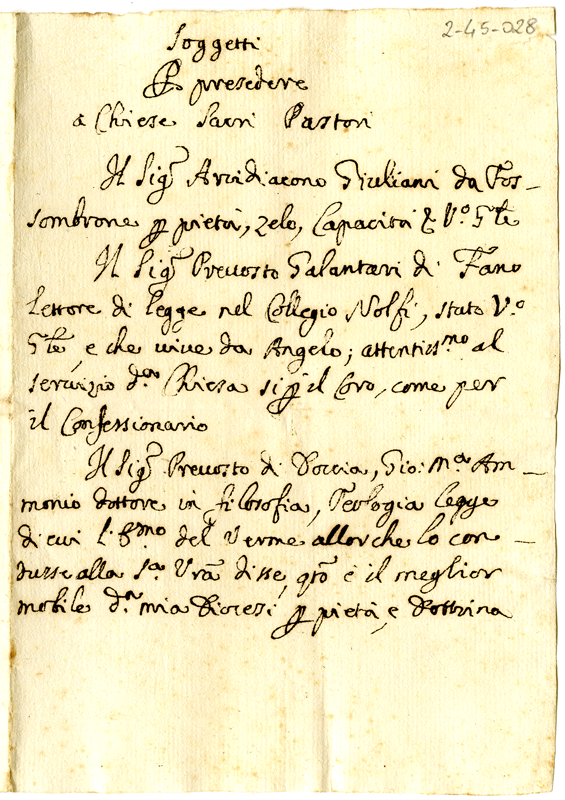 2-45-028
Soggetti
P presedere
a Chiese Sacri Pastori
Il Sigr Arcidiacono Giuliani da Fos-
sombrone p pietà, zelo, Capacità & Vo. Gle
Il Sigr Prevosto Galantari di Fano
Lettore di Legge nel Collegio Nolfi, stato Vo.
Gle, e che vive da Angelo; attentissmo al
servizio da Chiesa si p il Coro, come per
il Confessionario
Il Sigr Prevosto di Roccia, Gio: Ma Am-
monio dottore in filosofia, Teologia legge
di cui l'Emo del Verme allorche lo con-
dusse alla Sa Vra disse, qto è il meglior
mobile da mia Diocesi p pietà, e Dottrina